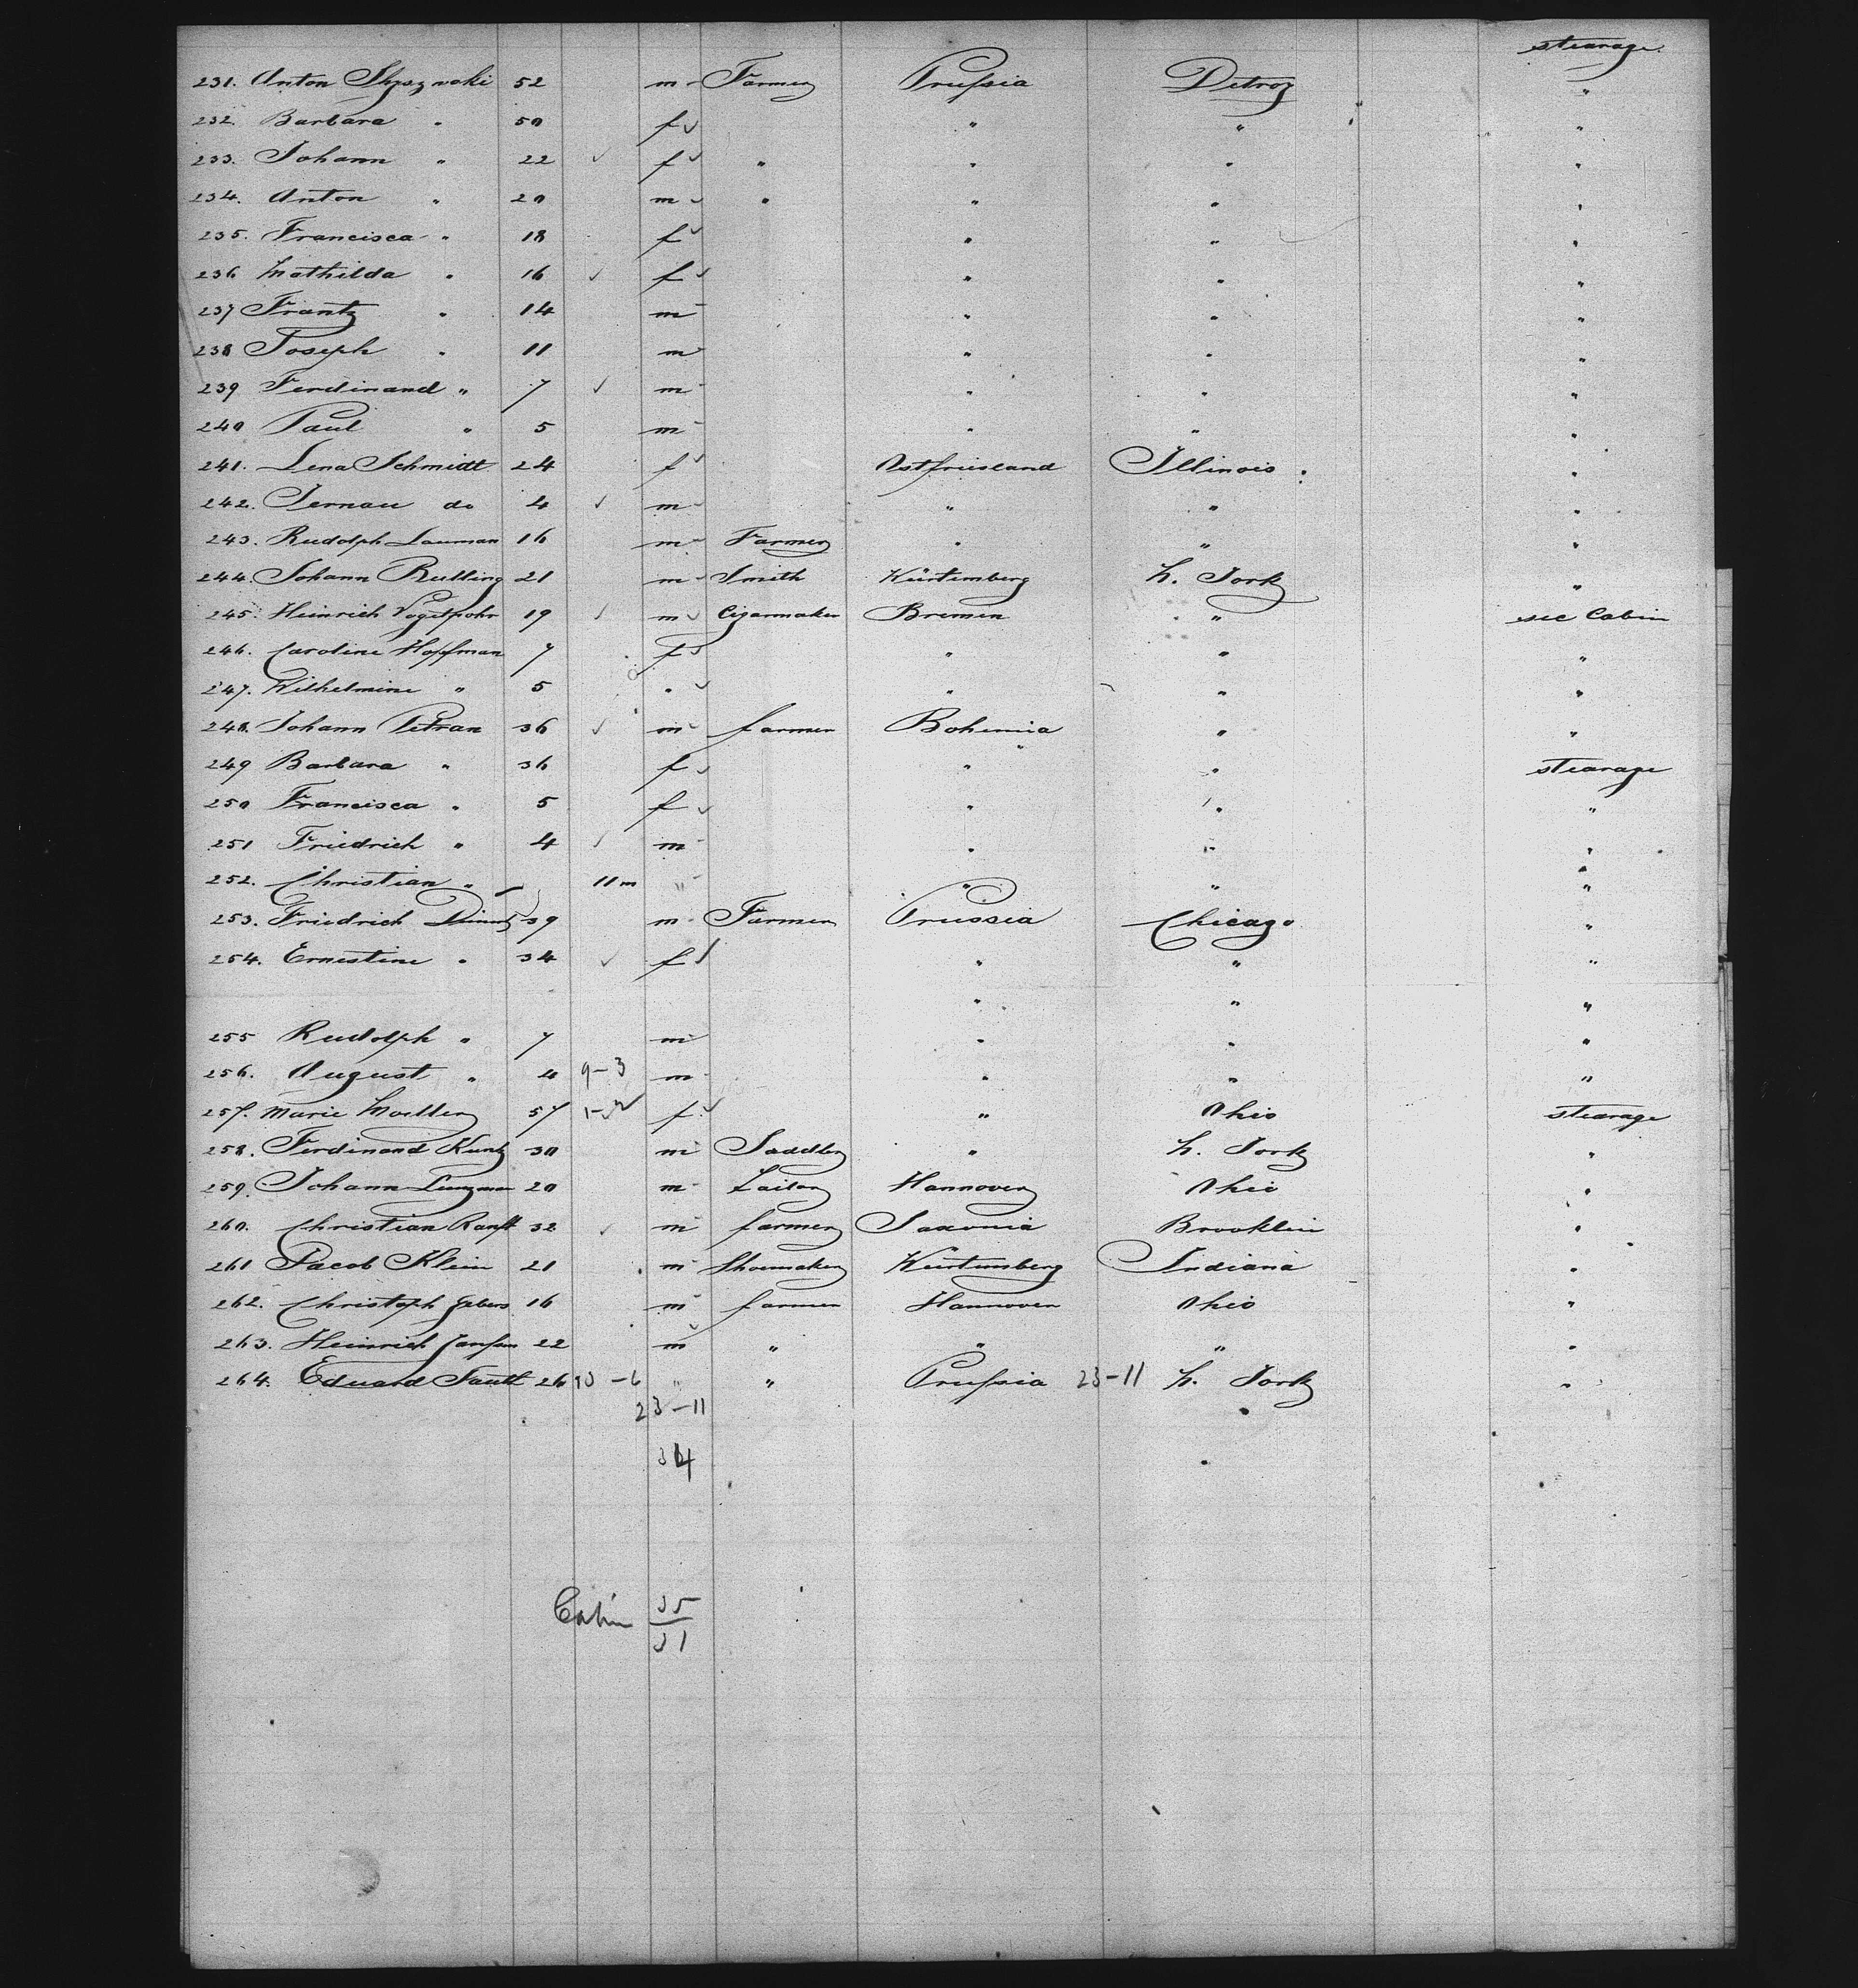 stearage
231. Anton 52 m Farmer Prussia Detroy "
232. Barbara " 50 f " " "
233. Johann " 22 f " " " "
234. Anton " 20 m " " " "
235. Francisca " 18 f " " "
236 Mathilda " 16 f " " "
237 Frantz " 14 m " " "
238 Joseph " 11 m " " "
239 Ferdinand " 7 m " " "
240 Paul " 5 m " " "
241. Lena Schmidt 24 f Ostfriesland Illinois "
242. do 4 m " " "
243. Rudolph Lauman 16 m Farmer " " "
244. Johann Rulling 21 m Smith Würtemberg N. York "
245. Heinrich Vogelpohr 19 m Cigarmaker Bremen " sec Cabin
246. Caroline Hoffman 7 f " " "
247. Wilhelmine " 5 " " " "
248. Johann Petran 36 m farmer Bohemia " "
249 Barbara " 36 f " " stearage
250 Francisca " 5 f " " "
251 Friedrich " 4 m " " "
252. Christian " 11m " " " "
253. Friedrich 39 m Farmer Prussia Chicago "
254. Ernestine " 34 f " " "
" " "
255 Rudolph " 7 m " " "
256. August " 4 9-3 m " " "
257. Marie Moeller 57 f " Ohio stearage
258. Ferdinand Kuntz 30 m Saddler " N. York "
259. Johann 20 m Tailor Hannover Ohio "
260. Christian Ranft 32 m farmer Saxonia Brooklin "
261 Jacob Klein 21 m Shoemaker Würtemberg Indiana "
262. Christoph Gebers 16 m farmer Hannover Ohio "
263. Heinrich Janssen 22 m " " " "
264. Eduard 26 " " Prussia 23-11 N. York "
23-11
34
Cabin